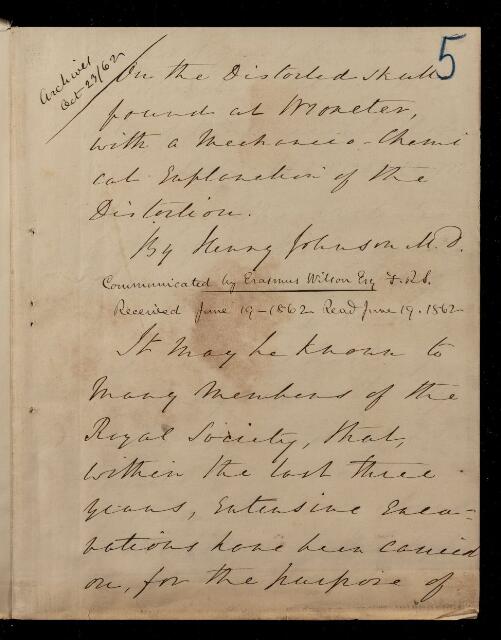 5
Archives
Oct 23/62
On the Distorted Skulls
found at Wroxeter,
with a Mechanico-Chemi
cal Explanation of the
Distortion.
By Henry Johnson M.D.
Communicated by Erasmus Wilson Esq F.R.S.
Received June 19-1862 Read June 19. 1862
It may be known to
many Members of the
Royal Society, that,
within the last three
years, extensive Exca-
vations have been carried
on, for the purpose of